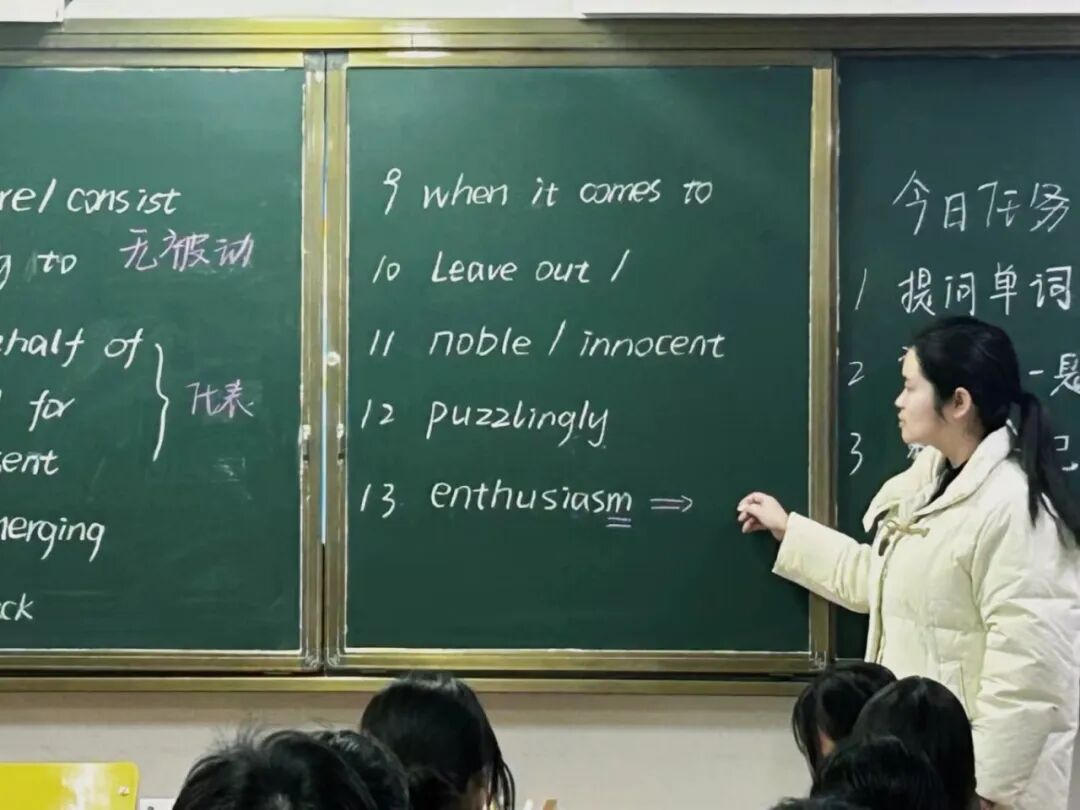 consist
to 无被动
of
for
代表
9 when it comes to
10 Leave out /
11 noble / innocent
12 puzzlingly
13 enthusiasm ⇒
今日任务
1 提问单词
2 一
3